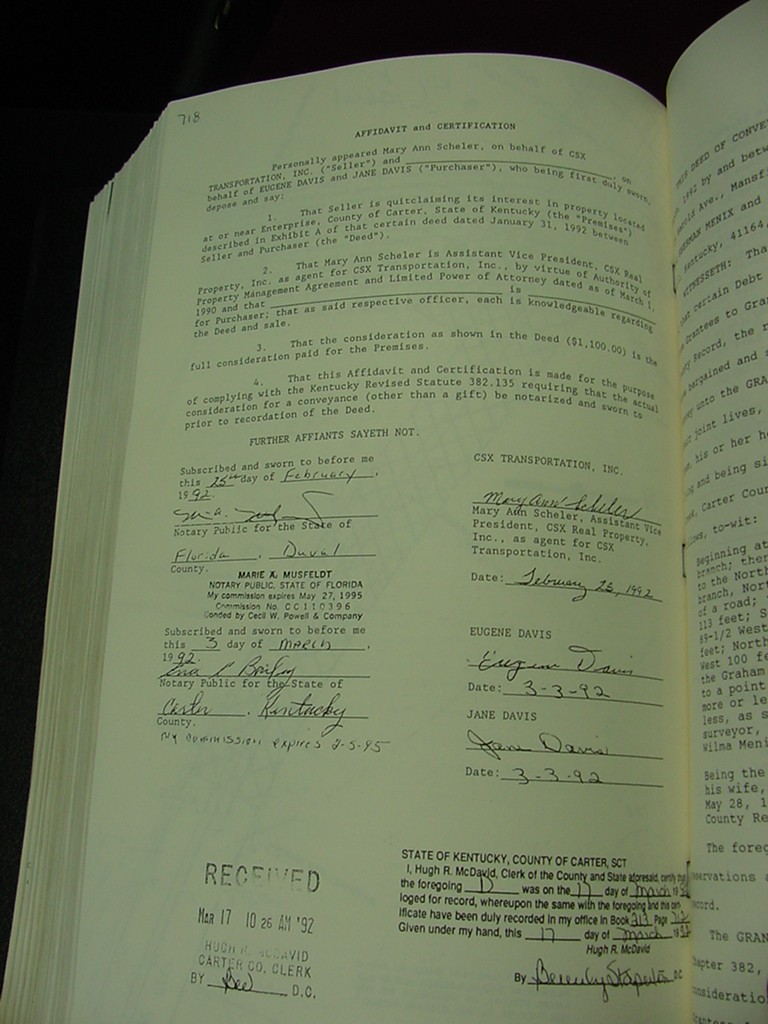 718
AFFIDAVIT and CERTIFICATION
Personally appeared Mary Ann Scheler, on behalf of CSX
TRANSPORTATION, INC. ("Seller") and ____________________; on
behalf of EUGENE DAVIS and JANE DAVIS ("Purchaser"), who being first duly sworn,
depose and say:
1. That Seller is quitclaiming its interest in property located
at or near Enterprise, County of Carter, State of Kentucky (the "Premises")
described in Exhibit A of that certain deed dated January 31, 1992 between
Seller and Purchaser (the "Deed").
2. That Mary Ann Scheler is Assistant Vice President, CSX Real
Property, Inc. as agent for CSX Transportation, Inc., by virtue of Authority of
Property Management Agreement and Limited Power of Attorney dated as of March 1,
1990 and that ____________________ is ____________________
for Purchaser; that as said respective officer, each is knowledgeable regarding
the Deed and sale.
3. That the consideration as shown in the Deed ($1,100.00) is the
full consideration paid for the Premises.
4. That this Affidavit and Certification is made for the purpose
of complying with the Kentucky Revised Statute 382.135 requiring that the actual
consideration for a conveyance (other than a gift) be notarized and sworn to
prior to recordation of the Deed.
FURTHER AFFIANTS SAYETH NOT.
Subscribed and sworn to before me
this 25th day of February,
1992.
Notary Public for the State of
Florida, Duval
County.
MARIE A. MUSFELDT
NOTARY PUBLIC, STATE OF FLORIDA
My commission expires May 27, 1995
Commission No. CC110396
Bonded by Cecil W. Powell & Company
Subscribed and sworn to before me
this 3 day of MARCH,
1992.
Notary Public for the State of
Carter, Kentucky
County.
My commission expires 2-5-95
CSX TRANSPORTATION, INC.
Mary Ann Scheler
Mary Ann Scheler, Assistant Vice
President, CSX Real Property,
Inc., as agent for CSX
Transportation, Inc.
Date: February 25, 1992
EUGENE DAVIS
Eugene Davis
Date: 3-3-92
JANE DAVIS
Jane Davis
Date: 3-3-92
RECEIVED
MAR 17 10 26 AM '92
HUGH R. McDAVID
CARTER CO. CLERK
BY ____ D.C.
STATE OF KENTUCKY, COUNTY OF CARTER, SCT
I, Hugh R. McDavid, Clerk of the County and State aforesaid, certify that
the foregoing D was on the 17 day of March 1992
loged for record, whereupon the same with the foregoing and this cert-
ificate have been duly recorded in my office in Book 213 Page 712
Given under my hand, this 17 day of March 1992
Hugh R. McDavid
By Beverly Stapleton D.C.
THIS DEED OF CONVEY
1992 by and betw
Ave., Mansfi
MENIX and
Kentucky, 41164,
WITNESSETH: Tha
certain Debt
Grantees to Gran
Record, the r
bargained and s
unto the GRA
joint lives,
his or her he
and being si
Carter Coun
to-wit:
Beginning at
branch; then
to the North
branch, Nor
of a road;
113 feet; S
89-1/2 West
feet; North
West 100 fe
the Graham
to a point
more or le
less, as s
surveyor,
Wilma Meni
Being the
his wife,
May 28, 1
County Re
The foreg
servations a
cord.
The GRAN
hapter 382,
nsideratio